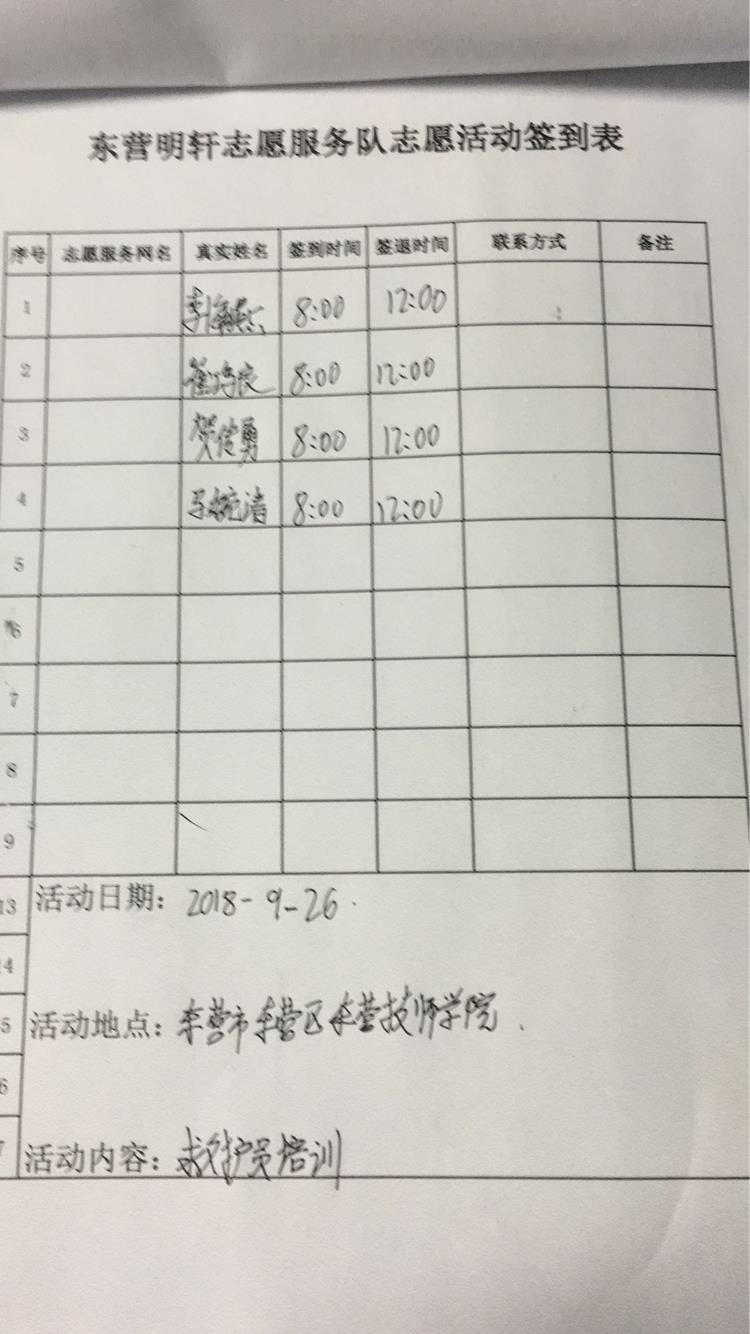 东营明轩志愿服务队志愿活动签到表
序号 志愿服务网名 真实姓名 签到时间 签退时间 联系方式 备注
1 8:00 12:00
2 8:00 12:00
3 贺信勇 8:00 12:00
4 8:00 12:00
5
6
7
8
9
13 活动日期: 2018-9-26.
4
5 活动地点: 东营市东营区东营技师学院.
6
7 活动内容: 救护员培训